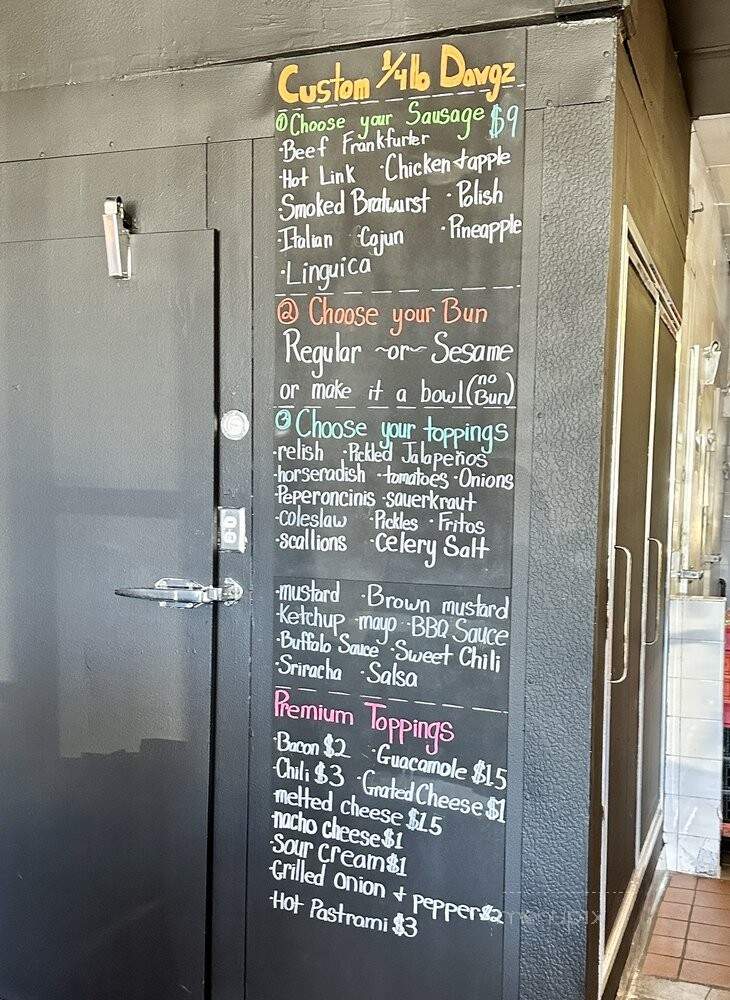 Custom 1/4 lb Dawgz
① Choose your Sausage $9
·Beef Frankfurter
·Hot Link ·Chicken + apple
·Smoked Bratwurst ·Polish
·Italian ·Cajun ·Pineapple
·Linguica
② Choose your Bun
Regular ~or~ Sesame
or make it a bowl (no Bun)
③ Choose your toppings
·relish ·Pickled Jalapeños
·horseradish ·tomatoes ·Onions
·Peperoncinis ·sauerkraut
·coleslaw ·Pickles ·Fritos
·scallions ·Celery Salt
·mustard ·Brown mustard
·Ketchup ·mayo ·BBQ Sauce
·Buffalo Sauce ·Sweet Chili
·Sriracha ·Salsa
Premium Toppings
·Bacon $2 ·Guacamole $1.5
·Chili $3 ·Grated Cheese $1
·melted cheese $1.5
·nacho cheese $1
·Sour Cream $1
·Grilled onion + peppers $2
·Hot Pastrami $3